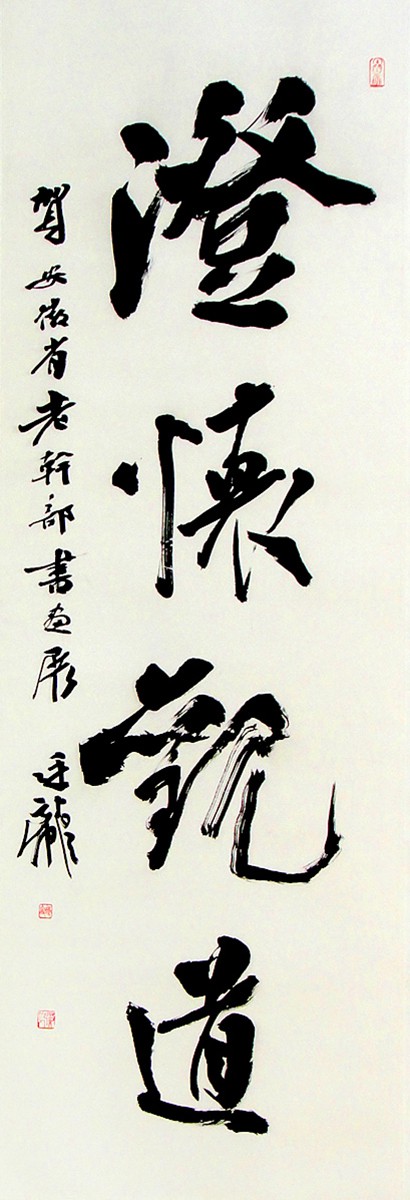 澄懷觀道
賀安徽省老幹部書畫展
廷龍